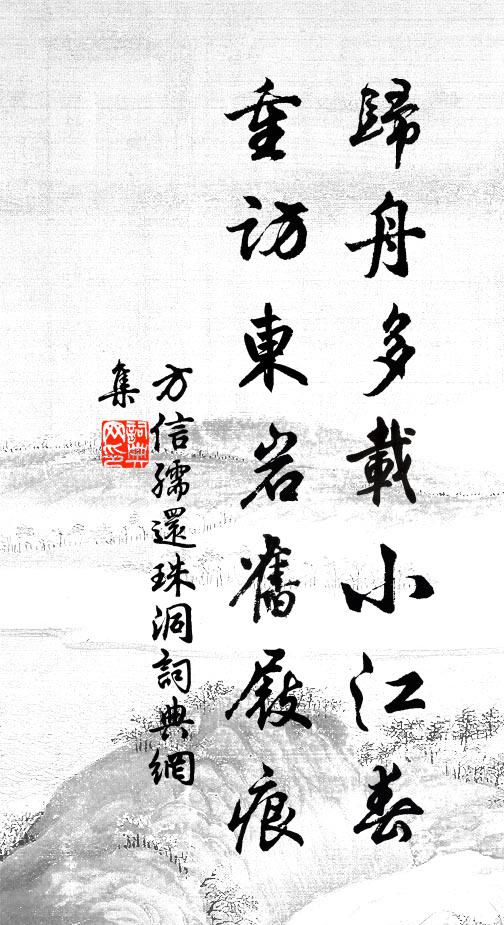 歸舟多載小江春
重訪東岩舊屐痕
方信孺還珠洞詞典網
集